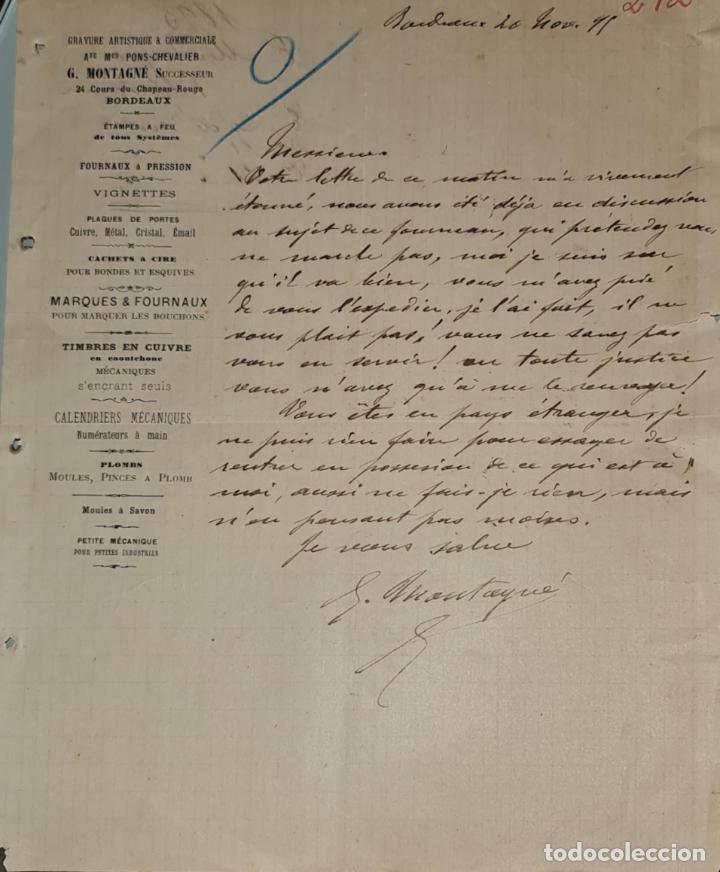 Bordeaux 20 Nov. 95
212
GRAVURE ARTISTIQUE & COMMERCIALE
Ane Mon PONS-CHEVALIER
G. MONTAGNÉ SUCCESSEUR
24 Cours du Chapeau-Rouge
BORDEAUX
ÉTAMPES A FEU
de tous Systèmes
FOURNAUX à PRESSION
VIGNETTES
PLAQUES DE PORTES
Cuivre, Métal, Cristal, Émail
CACHETS à CIRE
POUR BONDES ET ESQUIVES
MARQUES & FOURNAUX
POUR MARQUER LES BOUCHONS
TIMBRES EN CUIVRE
en caoutchouc
MÉCANIQUES
s'encrant seuls
CALENDRIERS MÉCANIQUES
Numérateurs à main
PLOMBS
MOULES, PINCES A PLOMB
Moules à Savon
PETITE MÉCANIQUE
POUR PETITES INDUSTRIES
Messieurs
Votre lettre de ce matin m'a vivement
étonné, nous avons été déja en discussion
au sujet de ce fourneau, qui prétendez vous
ne marche pas, moi je suis sur
qu'il va bien, vous m'avez prié
de vous l'expedier, je l'ai fait, il ne
vous plait pas, vous ne savez pas
vous en servir! en toute justice
vous n'avez qu'à me le renvoyer!
Vous êtes en pays étranger, je
ne puis rien faire pour essayer de
rentrer en possesion de ce qui est à
moi, aussi ne fais-je rien, mais
n'en pensant pas moins.
Je vous salue
G. Montagné
todocoleccion.net